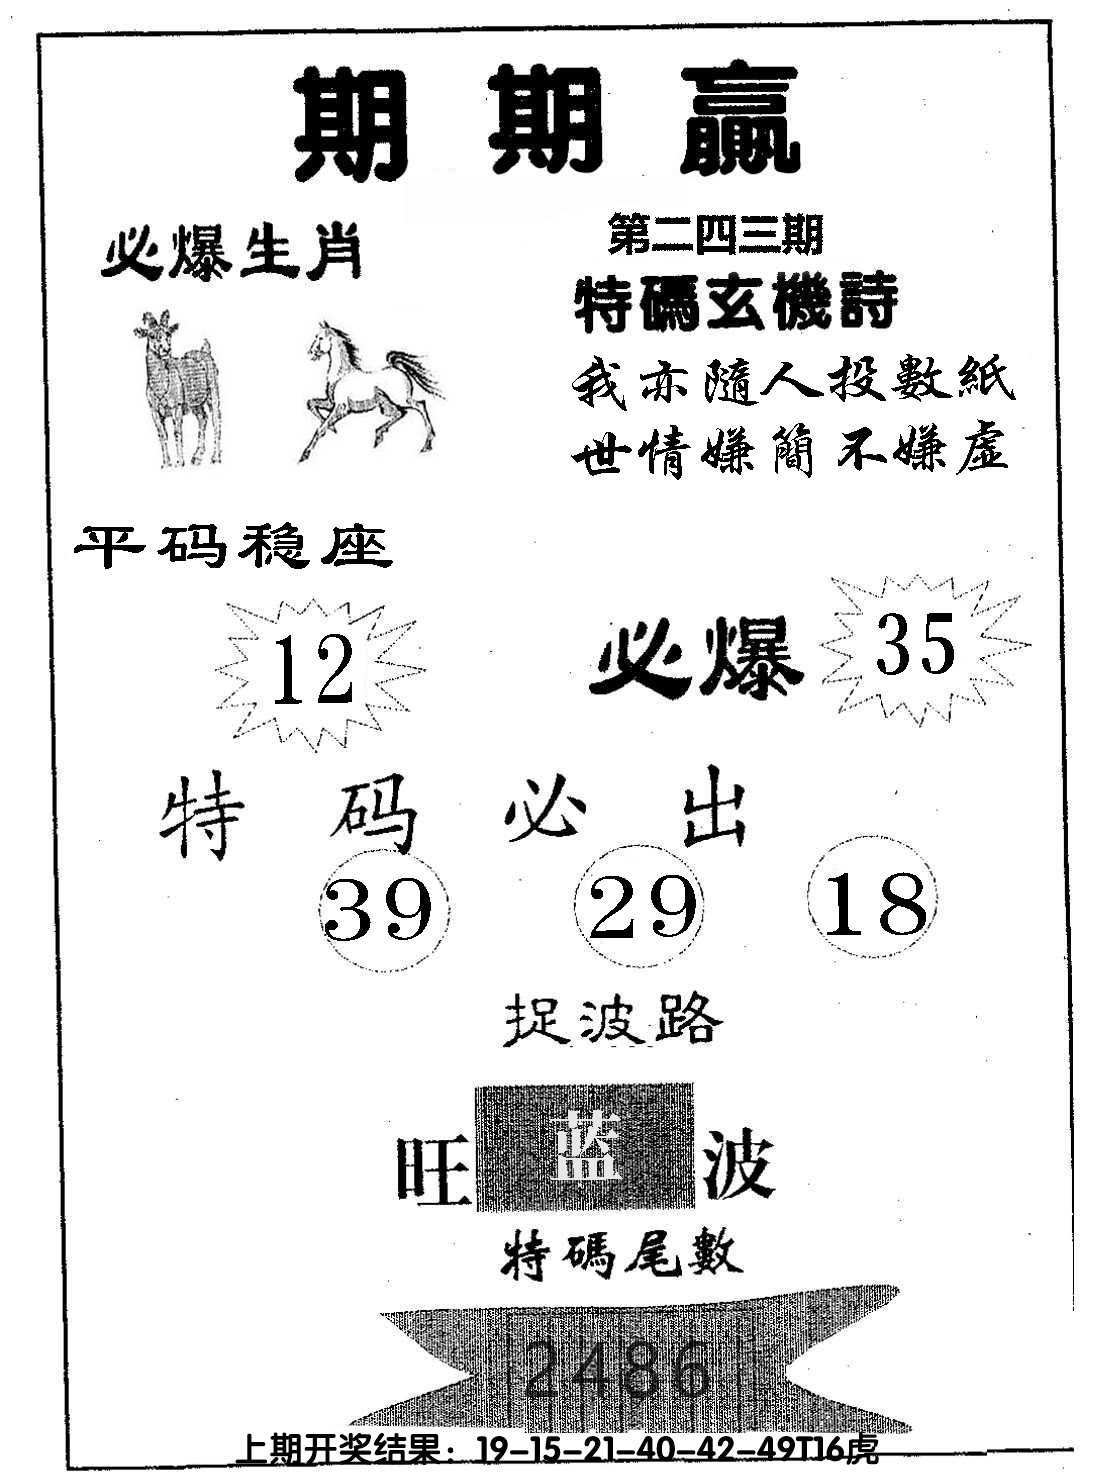 期期贏
必爆生肖
第二四三期
特碼玄機詩
我亦隨人投數紙
世情嫌簡不嫌虛
平码稳座
12
必爆 35
特码必出
39 29 18
捉波路
旺 蓝 波
特碼尾數
2486
上期开奖结果：19-15-21-40-42-49T16虎